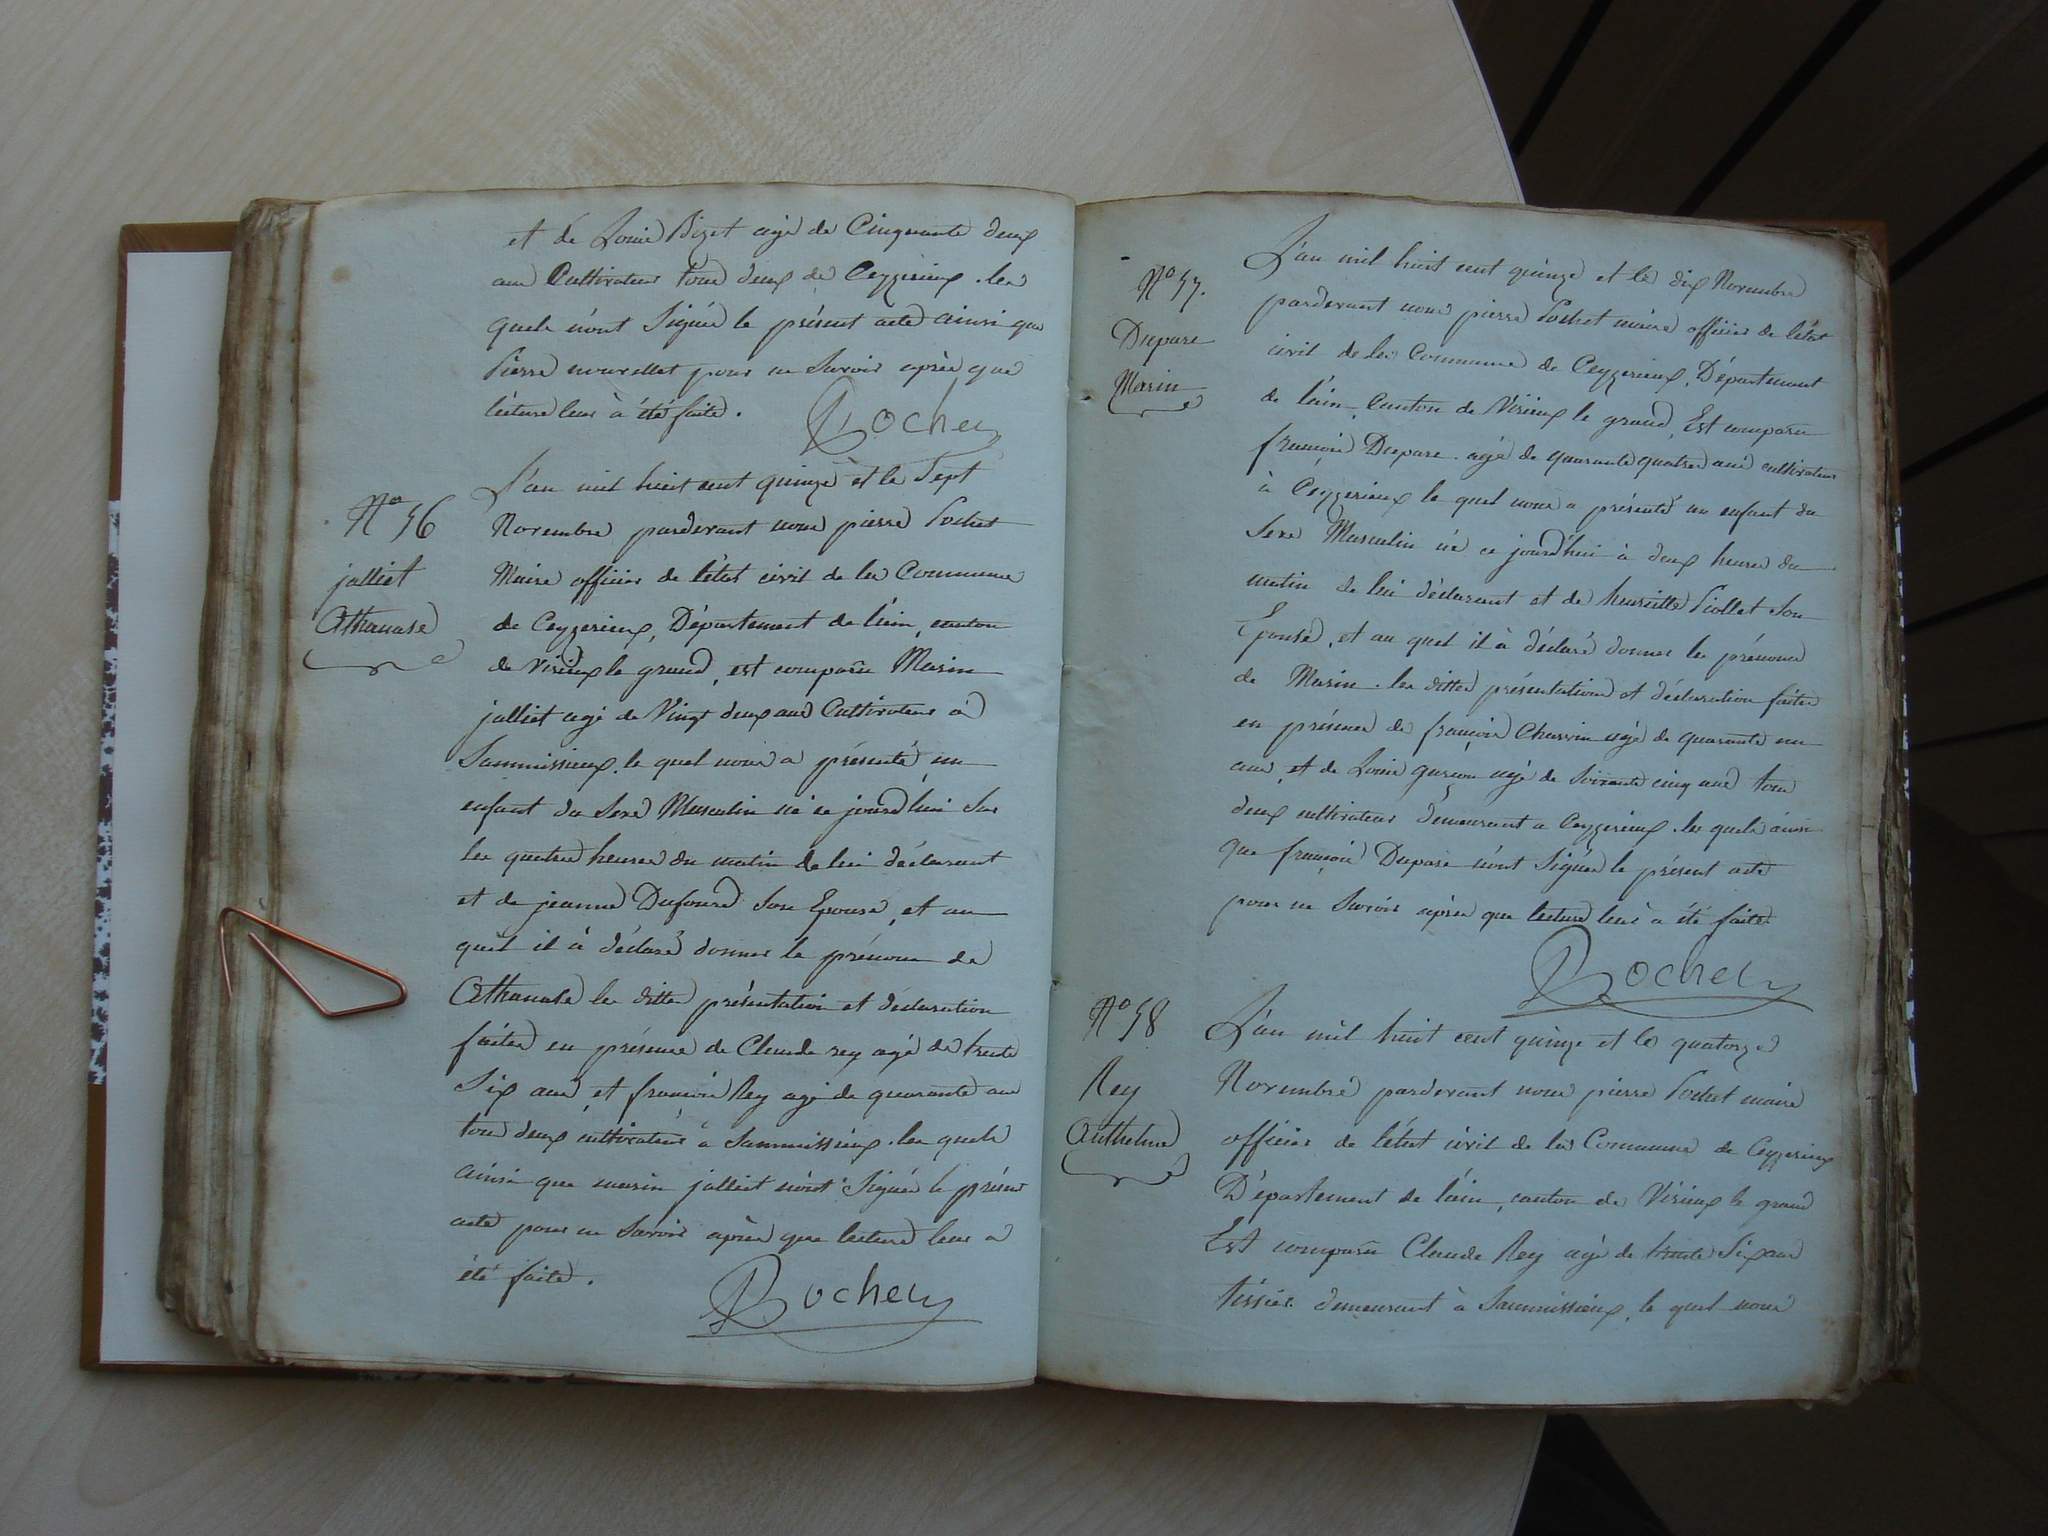 et de Louis Bizet agé de Cinquante deux
ans Cultivateur tous deux de Ceyzerieux. les
quels n'ont Signés le présent acte ainsi que
Pierre pour ne Savoir après que
lécture leur à été faite.
N° 56
jalliet
Athanase
L'an mil huit cent quinze et le Sept
Novembre pardevant nous pierre Pochet
Maire officier de l'état civil de la Commune
de Ceyzerieux, Département de l'ain, canton
de Virieux le grand, est comparu Marin
jalliet agé de Vingt deux ans Cultivateur à
Sammissieux. le quel nous a présenté un
enfant du Sexe Masculin né ce jourd'hui Sur
les quatre heures du matin de lui déclarant
et de jeanne Dufour Son Epouse, et au
quel il à déclaré donner le prénom de
Athanase les dittes présentation et déclaration
faites en présence de Claude rey agé de trente
Six ans, et françois Rey agé de quarante ans
tous deux cultivateurs à Sammissieux. les quels
ainsi que marin jalliet n'ont Signés le présent
acte pour ne Savoir après que lecture leur a
été faite.
N° 57.
Dupare
Marin
L'an mil huit cent quinze et le dix Novembre
pardevant nous pierre Pochet maire officier de l'état
civil de la Commune de Ceyzerieux, Département
de l'ain, Canton de Virieux le grand, Est comparu
françois Dupare. agé de quarante quatre ans cultivateur
à Ceyzerieux le quel nous a présenté un enfant du
Sexe Masculin né ce jourd'hui à deux heures du
matin de lui déclarant et de Piollet Son
Epouse, et au quel il à déclaré donner le prénom
de Marin. les dittes présentation et déclaration faites
en présence de françois Charvin agé de quarante un
ans, et de Louis garçon agé de Soixante cinq ans tous
deux cultivateurs demeurant a Ceyzerieux. les quels ainsi
que françois Dupare n'ont Signés le présent acte
pour ne Savoir après que lecture leur a été faite
N° 58
Rey
Anthelme
L'an mil huit cent quinze et le quatorze
Novembre pardevant nous pierre Pochet maire
officier de l'état civil de la Commune de Ceyzerieux
Département de l'ain, canton de Virieux le grand
Est comparu Claude Rey agé de trente Six ans
tissier demeurant à Sammissieux, le quel nous